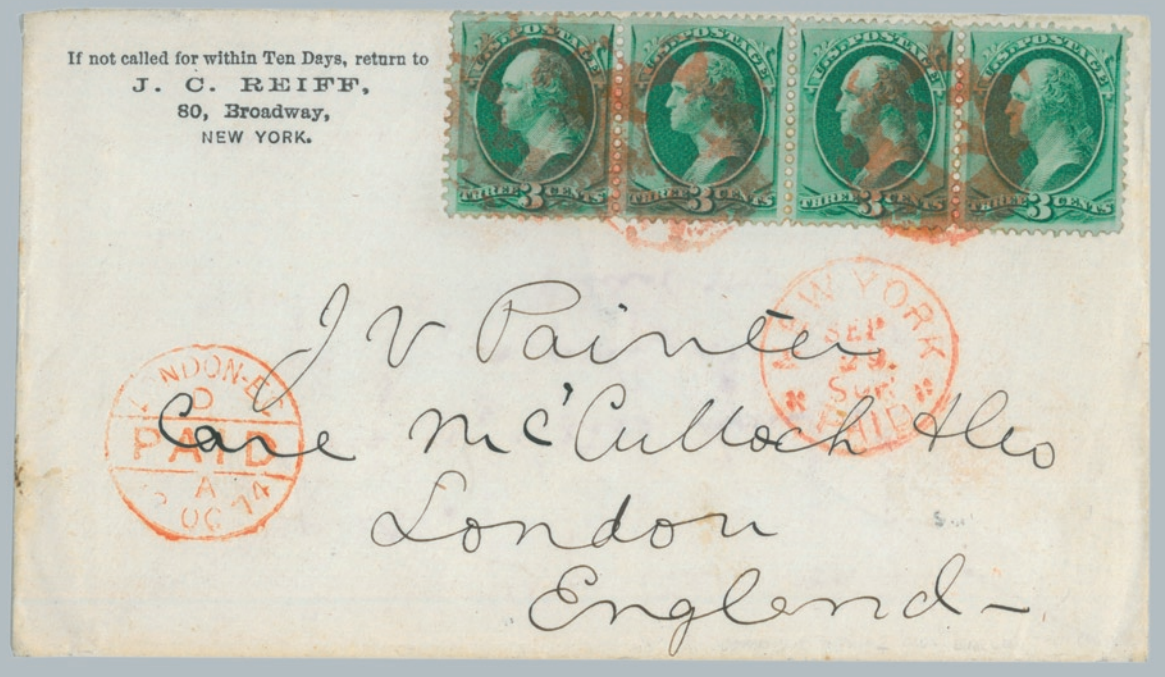 If not called for within Ten Days, return to
J. C. REIFF,
80, Broadway,
NEW YORK.
U.S. POSTAGE
THREE 3 CENTS
U.S. POSTAGE
THREE 3 CENTS
U.S. POSTAGE
THREE 3 CENTS
U.S. POSTAGE
THREE 3 CENTS
NEW YORK
SEP
29
PAID
J V Painter
Care McCulloch & Co
London
England-
LONDON-EC
D
PAID
A
OC 74